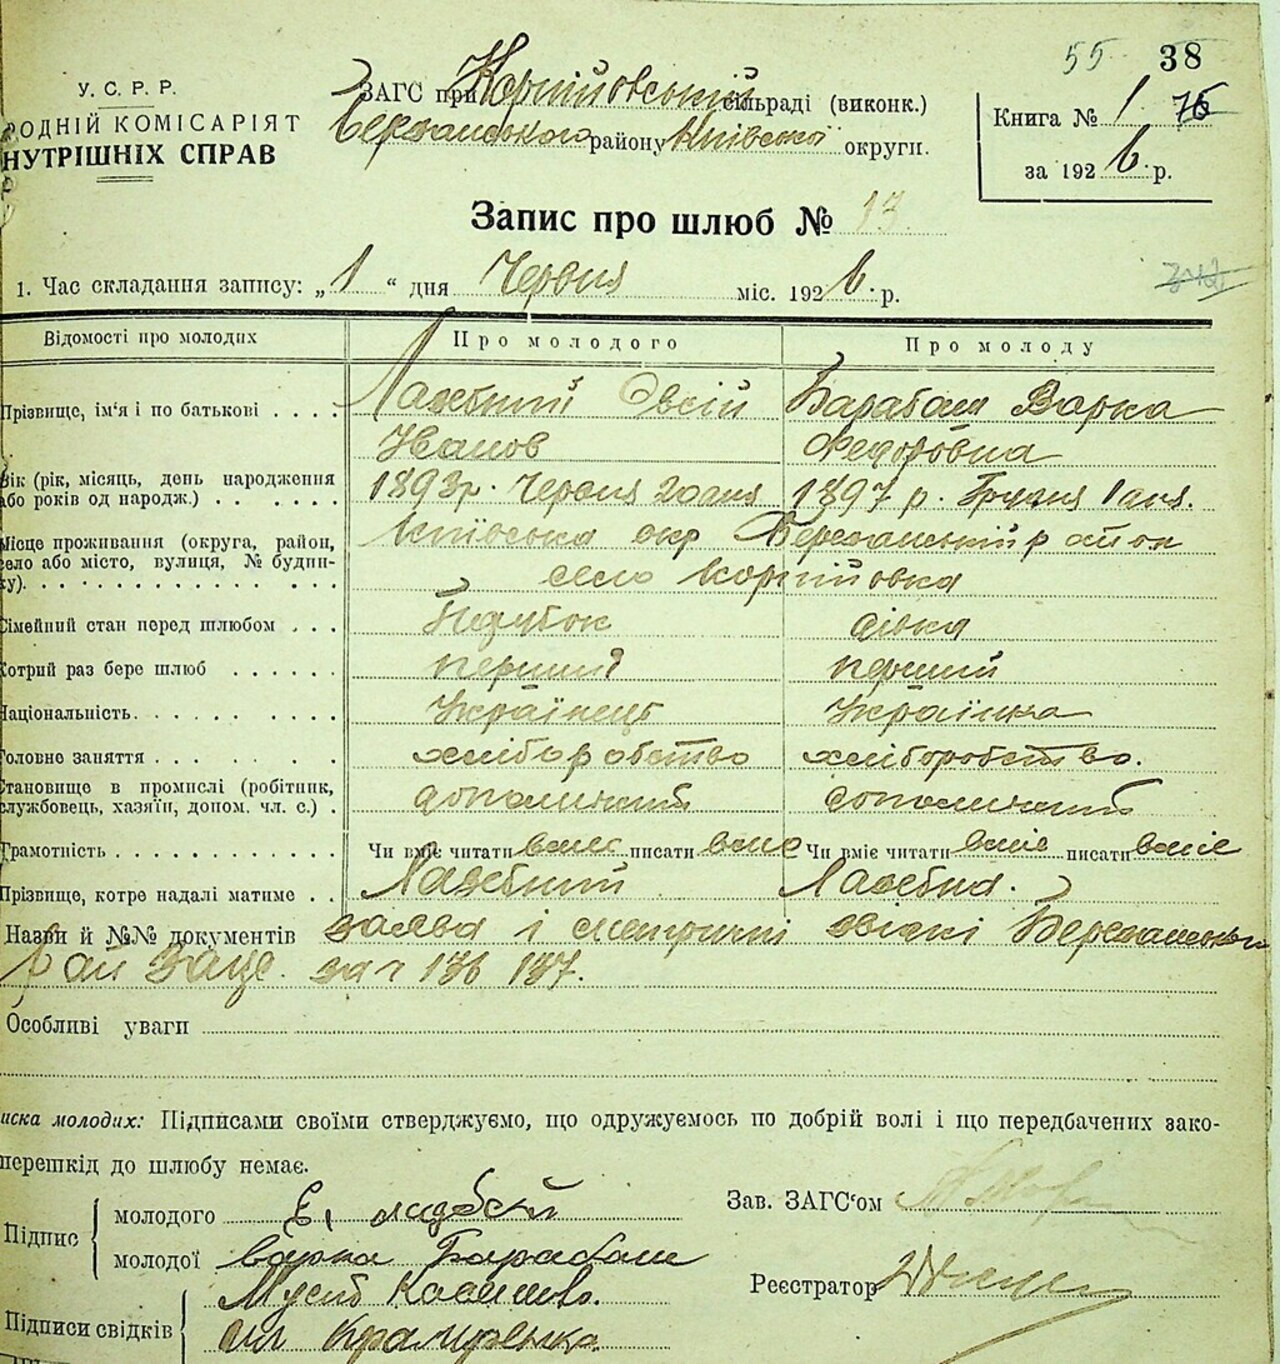 55 38
У. С. Р. Р.
РОДНІЙ КОМІСАРІЯТ
НУТРІШНІХ СПРАВ
ЗАГС при Корнійовській сільраді (виконк.)
Березанського району Київської округи.
Книга № 1 76
за 1926 р.
Запис про шлюб № 13
1. Час складання запису: „1“ дня Червня міс. 1926. р.
Відомості про молодих Про молодого Про молоду
Прізвище, ім'я і по батькові . . . . Лазебний Овсій Барабаш Варка
Иванов Федоровна
Вік (рік, місяць, день народження
або років од народж.) . . . . . . 1893 р. Червня 20 дня 1897 р. Грудня 1 дня.
Місце проживання (округа, район, Київська окр Березанський район
село або місто, вулиця, № будин-
ку). . . . . . . . . . . . . село Корнійовка
Сімейний стан перед шлюбом . . . Парубок дівка
Котрий раз бере шлюб . . . . . . перший перший
Національність. . . . . . . . . Українець Українка
Головне заняття . . . . . . . . хліборобство хліборобство.
Становище в промислі (робітник,
службовець, хазяїн, допом. чл. с.) .
Грамотність . . . . . . . . . . . . Чи вміє читати вміє писати вміє Чи вміє читати вміє писати вміє
Прізвище, котре надалі матиме . . Лазебний Лазебна.
Назви й №№ документів заява і метричні звіскі Березанськ
Рай Загс. за № 136 137.
Особливі уваги
иска молодих: Підписами своїми стверджуємо, що одружуємось по добрій волі і що передбачених зако-
перешкід до шлюбу немає.
Підпис молодого Є,
молодої Варка Барабаш
Зав. ЗАГС'ом
Реєстратор
Підписи свідків